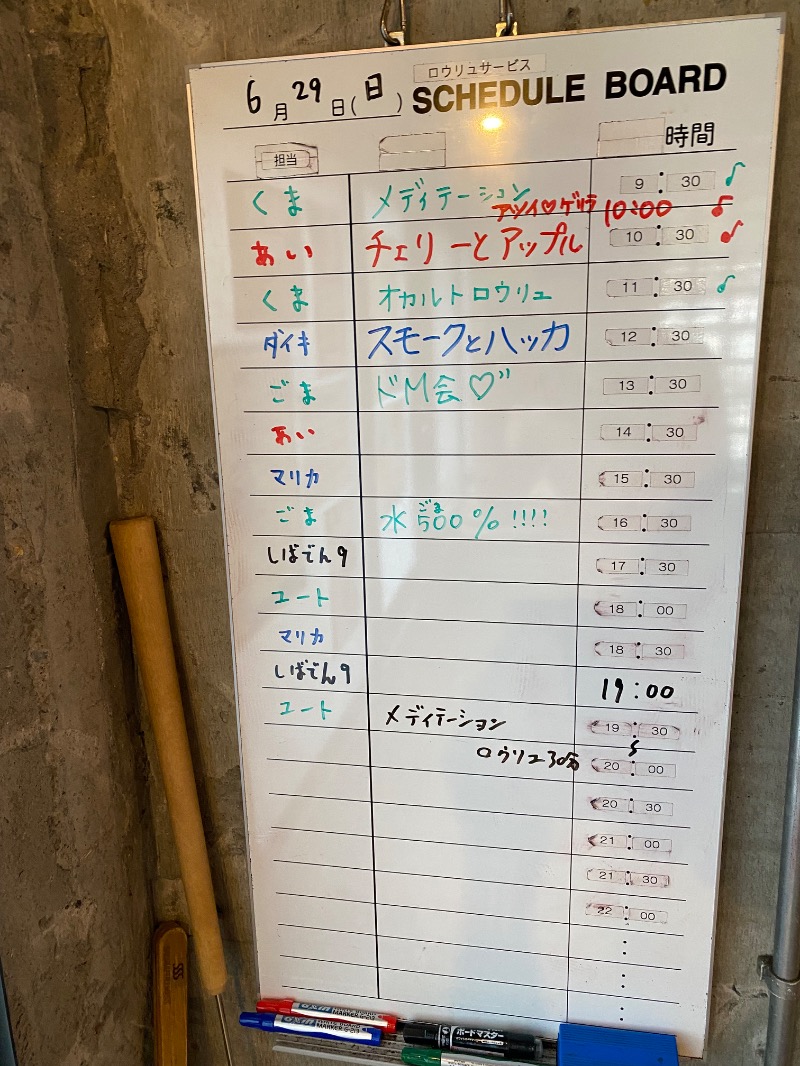 ロウリュサービス
6月29日(日) SCHEDULE BOARD
担当 時間
くま メディテーション 9:30 ♪
アツイ♡ゲリラ 10:00 ♪
あい チェリーとアップル 10:30 ♪
くま オカルトロウリュ 11:30 ♪
ダイキ スモークとハッカ 12:30
ごま ドM会♡" 13:30
あい 14:30
マリカ 15:30
ごま
ごま 水500% !!!! 16:30
しばでん9 17:30
ユート 18:00
マリカ 18:30
しばでん9 19:00
ユート メディテーション 19:30
ロウリュ30分 20:00
20:30
21:00
21:30
22:00
:
:
:
ボードマスター